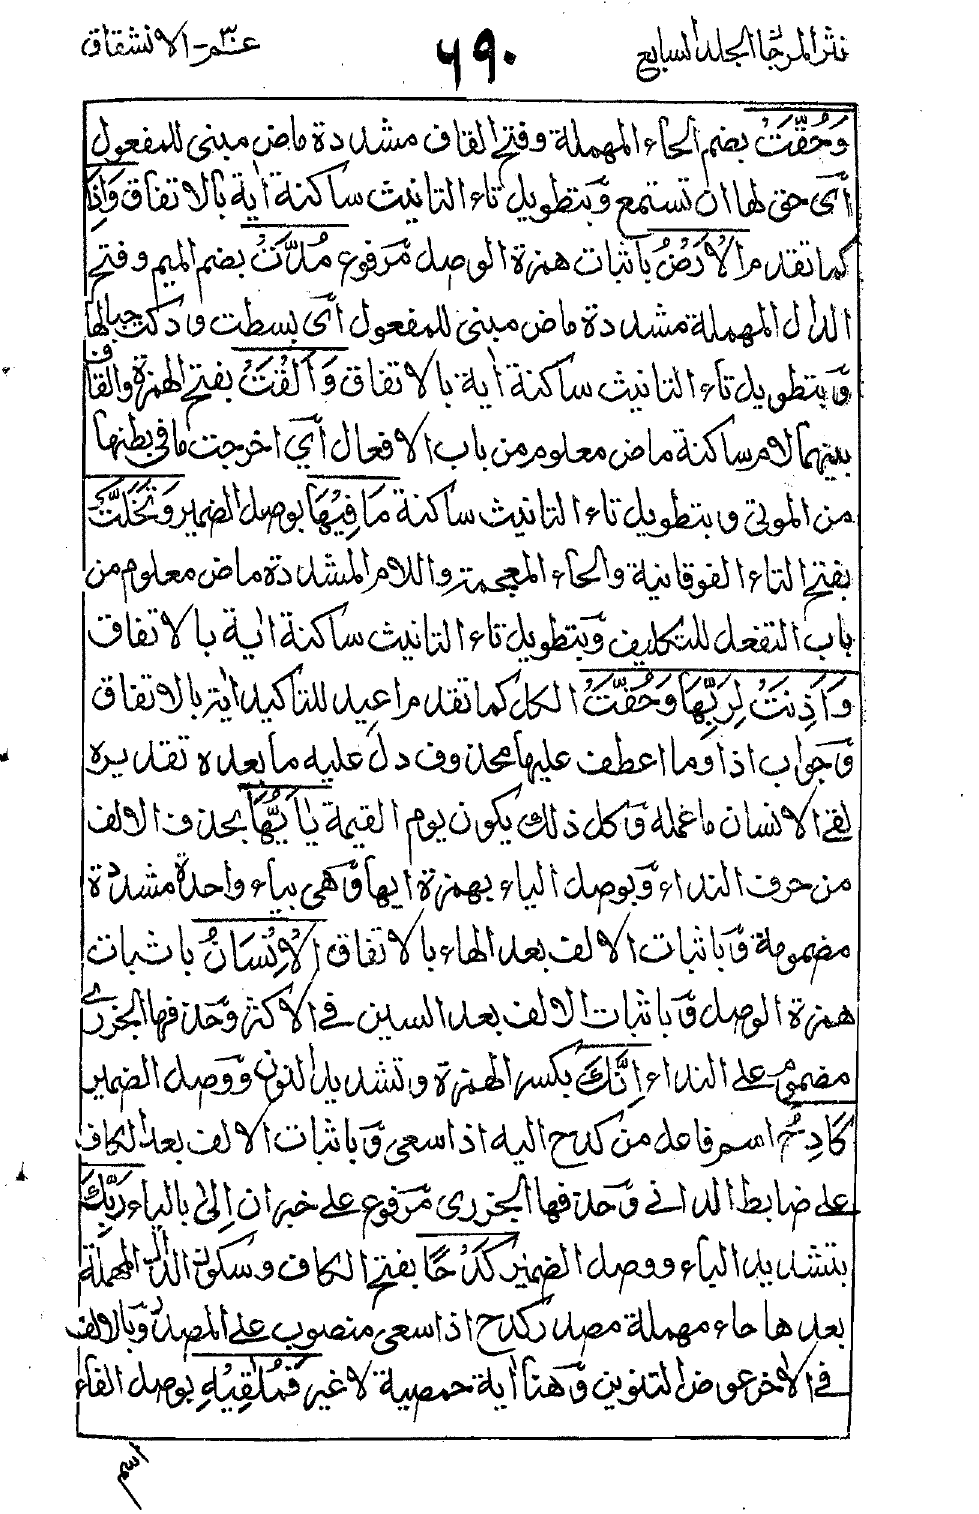 نثر المرجان الجلد السابع ٦٩٠ عم - الانشقاق
وَحُقَّتْ بضم الحاء المهملة وفتح القاف مشددة ماض مبنى للمفعول
أى حق لها ان تستمع وبتطويل تاء التانيث ساكنة اية بالاتفاق وَاِذَا
كما تقدم الْاَرْضُ باثبات همزة الوصل مرفوع مُدَّتْ بضم الميم وفتح
الدال المهملة مشددة ماض مبنى للمفعول أى بسطت ودكت جبالها
وبتطويل تاء التانيث ساكنة اية بالاتفاق وَاَلْقَتْ بفتح الهمزة والقاف
بينهما لام ساكنة ماض معلوم من باب الافعال أى اخرجت ما فى بطنها
من الموتى وبتطويل تاء التانيث ساكنة مَا فِيْهَا بوصل الضمير وَتَخَلَّتْ
بفتح التاء الفوقانية والخاء المعجمة واللام المشددة ماض معلوم من
باب التفعل للتكليف وبتطويل تاء التانيث ساكنة اية بالاتفاق
وَاَذِنَتْ لِرَبِّهَا وَحُقَّتْ الكل كما تقدم اعيد للتاكيد اية بالاتفاق
وجواب اذا وما عطف عليها محذوف دل عليه ما بعده تقديره
لقى الانسان ما عمله وكل ذلك يكون يوم القيمة يٰاَيُّهَا بحذف الالف
من حرف النداء وبوصل الياء بهمزة ايها وهى بياء واحدة مشددة
مضمومة وباثبات الالف بعد الهاء بالاتفاق الْاِنْسَانُ باثبات
همزة الوصل وباثبات الالف بعد السين فى الاكثر وحذفها الجزرى
مضموم على النداء اِنَّكَ بكسر الهمزة وتشديد النون ووصل الضمير
كَادِحٌ اسم فاعل من كدح اليه اذا سعى وباثبات الالف بعد الكاف
على ضابط الدانى وحذفها الجزرى مرفوع على خبر ان اِلٰى بالياء رَبِّكَ
بتشديد الباء ووصل الضمير كَدْحًا بفتح الكاف وسكون الدال المهملة
بعدها حاء مهملة مصدر كدح اذا سعى منصوب على المصدر وبالالف
فى الاخر عوض التنوين وهنا اية حمصية لا غير فَمُلٰقِيْهِ بوصل الفاء
اسم